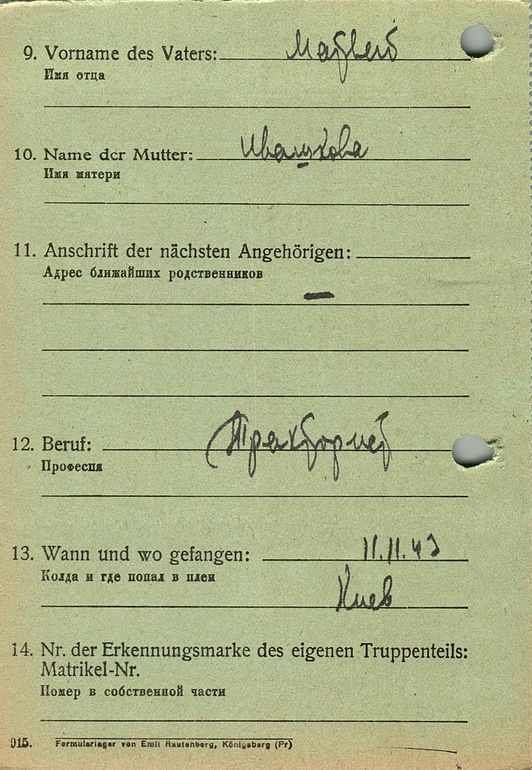 9. Vorname des Vaters: Матвей
Имя отца
10. Name der Mutter: Ивашкова
Имя мятери
11. Anschrift der nächsten Angehörigen:
Адрес ближайших родственников
12. Beruf: Тракторист
Професия
13. Wann und wo gefangen: 11.11.43
Колда и где попал в плен
Киев
14. Nr. der Erkennungsmarke des eigenen Truppenteils:
Matrikel-Nr.
Номер в собственной части
915. Formularlager von Emil Rautenberg, Königsberg (Pr)